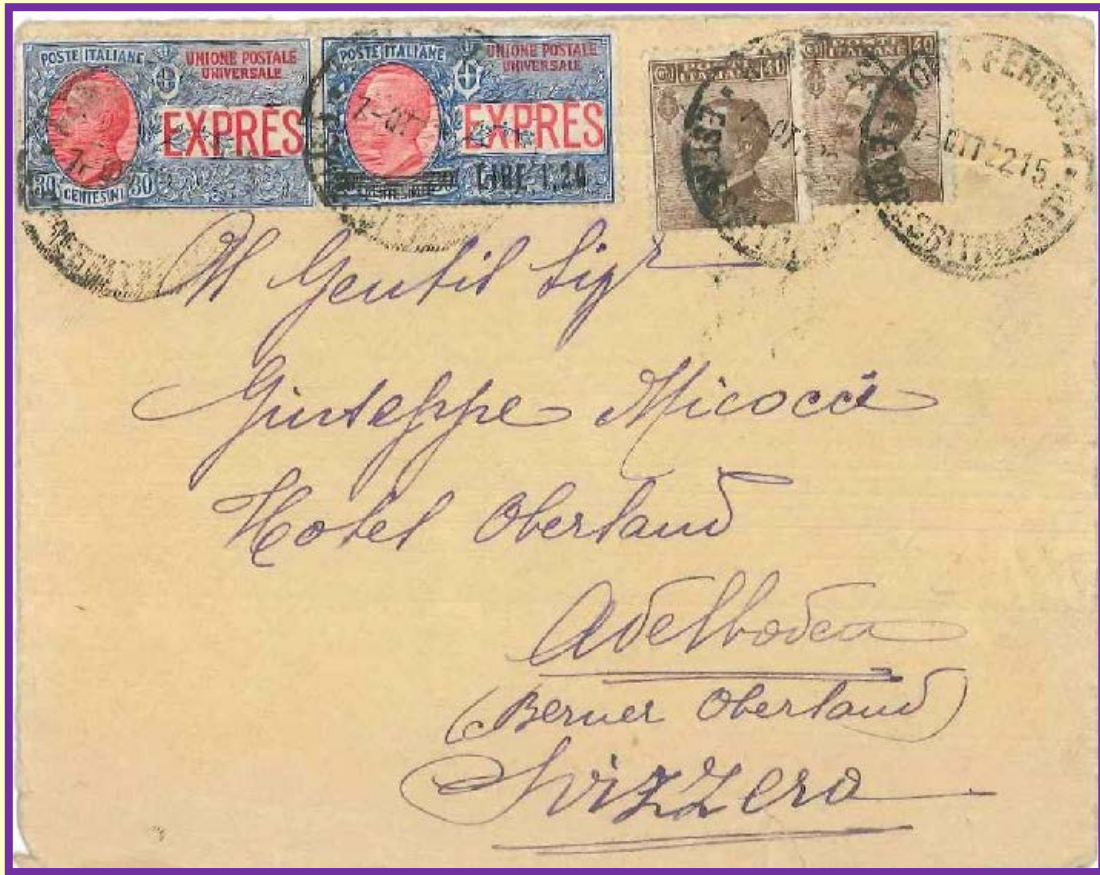 POSTE ITALIANE UNIONE POSTALE UNIVERSALE
EXPRÈS
30 CENTESIMI 30
POSTE ITALIANE UNIONE POSTALE UNIVERSALE
EXPRÈS
LIRE 1,20
40
POSTE ITALIANE 40
1-OTT 22 15
Al Gentil Sigr
Giuseppe Micocci
Hotel Oberland
Adelboden
(Berner Oberland)
Svizzera